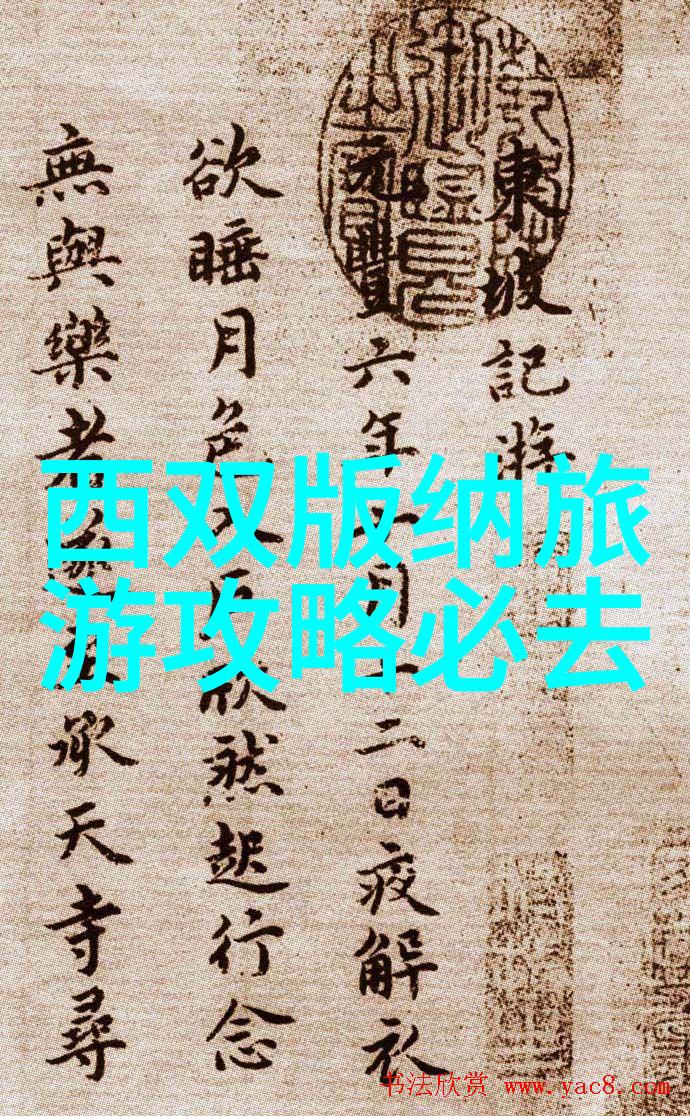 東坡記游
元豐六年十月十二日夜解衣
欲睡月色入戶欣然起行念
無與樂者遂至承天寺尋
西双版纳旅
游攻略必去
书法欣赏 www.yac8.com